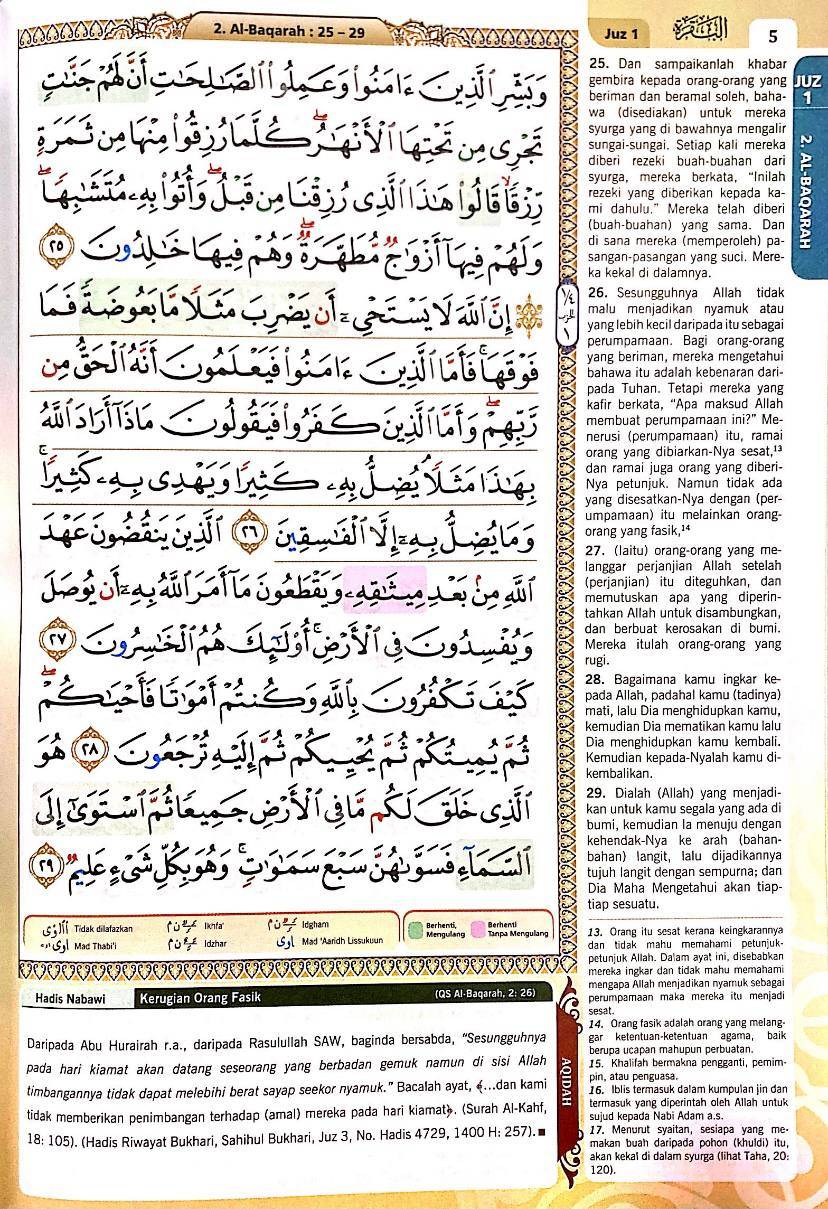 2. Al-Baqarah : 25 – 29
Juz 1
البقرة
5
وَبَشِّرِ الَّذِينَ ءَامَنُوا وَعَمِلُوا الصَّالِحَاتِ أَنَّ لَهُمْ جَنَّاتٍ
تَجْرِي مِن تَحْتِهَا الْأَنْهَارُ ۖ كُلَّمَا رُزِقُوا مِنْهَا مِن ثَمَرَةٍ
رِّزْقًا ۙ قَالُوا هَٰذَا الَّذِي رُزِقْنَا مِن قَبْلُ ۖ وَأُتُوا بِهِ مُتَشَابِهًا ۖ
وَلَهُمْ فِيهَا أَزْوَاجٌ مُّطَهَّرَةٌ ۖ وَهُمْ فِيهَا خَالِدُونَ ٢٥
۞ إِنَّ اللَّهَ لَا يَسْتَحْيِ أَن يَضْرِبَ مَثَلًا مَّا بَعُوضَةً فَمَا
فَوْقَهَا ۚ فَأَمَّا الَّذِينَ ءَامَنُوا فَيَعْلَمُونَ أَنَّهُ الْحَقُّ مِن
رَّبِّهِمْ ۖ وَأَمَّا الَّذِينَ كَفَرُوا فَيَقُولُونَ مَاذَا أَرَادَ اللَّهُ
بِهَٰذَا مَثَلًا ۘ يُضِلُّ بِهِ كَثِيرًا وَيَهْدِي بِهِ كَثِيرًا ۚ
وَمَا يُضِلُّ بِهِ إِلَّا الْفَاسِقِينَ ٢٦ الَّذِينَ يَنقُضُونَ عَهْدَ
اللَّهِ مِن بَعْدِ مِيثَاقِهِ وَيَقْطَعُونَ مَا أَمَرَ اللَّهُ بِهِ أَن يُوصَلَ
وَيُفْسِدُونَ فِي الْأَرْضِ ۚ أُولَٰئِكَ هُمُ الْخَاسِرُونَ ٢٧
كَيْفَ تَكْفُرُونَ بِاللَّهِ وَكُنتُمْ أَمْوَاتًا فَأَحْيَاكُمْ ۖ
ثُمَّ يُمِيتُكُمْ ثُمَّ يُحْيِيكُمْ ثُمَّ إِلَيْهِ تُرْجَعُونَ ٢٨ هُوَ
الَّذِي خَلَقَ لَكُم مَّا فِي الْأَرْضِ جَمِيعًا ثُمَّ اسْتَوَىٰ إِلَى
السَّمَاءِ فَسَوَّاهُنَّ سَبْعَ سَمَاوَاتٍ ۚ وَهُوَ بِكُلِّ شَيْءٍ عَلِيمٌ ٢٩
Tidak dilafazkan
Ikhfa'
Idgham
Mad Thabi'i
Idzhar
Mad 'Aaridh Lissukuun
Berhenti, Mengulang
Berhenti Tanpa Mengulang
Hadis Nabawi
Kerugian Orang Fasik
(QS Al-Baqarah, 2: 26)
Daripada Abu Hurairah r.a., daripada Rasulullah SAW, baginda bersabda, "Sesungguhnya
pada hari kiamat akan datang seseorang yang berbadan gemuk namun di sisi Allah
timbangannya tidak dapat melebihi berat sayap seekor nyamuk." Bacalah ayat, ﴾...dan kami
tidak memberikan penimbangan terhadap (amal) mereka pada hari kiamat﴿. (Surah Al-Kahf,
18: 105). (Hadis Riwayat Bukhari, Sahihul Bukhari, Juz 3, No. Hadis 4729, 1400 H: 257). ■
AQIDAH
25. Dan sampaikanlah khabar
gembira kepada orang-orang yang
beriman dan beramal soleh, baha-
wa (disediakan) untuk mereka
syurga yang di bawahnya mengalir
sungai-sungai. Setiap kali mereka
diberi rezeki buah-buahan dari
syurga, mereka berkata, "Inilah
rezeki yang diberikan kepada ka-
mi dahulu." Mereka telah diberi
(buah-buahan) yang sama. Dan
di sana mereka (memperoleh) pa-
sangan-pasangan yang suci. Mere-
ka kekal di dalamnya.
26. Sesungguhnya Allah tidak
malu menjadikan nyamuk atau
yang lebih kecil daripada itu sebagai
perumpamaan. Bagi orang-orang
yang beriman, mereka mengetahui
bahawa itu adalah kebenaran dari-
pada Tuhan. Tetapi mereka yang
kafir berkata, "Apa maksud Allah
membuat perumpamaan ini?" Me-
nerusi (perumpamaan) itu, ramai
orang yang dibiarkan-Nya sesat,¹³
dan ramai juga orang yang diberi-
Nya petunjuk. Namun tidak ada
yang disesatkan-Nya dengan (per-
umpamaan) itu melainkan orang-
orang yang fasik,¹⁴
27. (Iaitu) orang-orang yang me-
langgar perjanjian Allah setelah
(perjanjian) itu diteguhkan, dan
memutuskan apa yang diperin-
tahkan Allah untuk disambungkan,
dan berbuat kerosakan di bumi.
Mereka itulah orang-orang yang
rugi.
28. Bagaimana kamu ingkar ke-
pada Allah, padahal kamu (tadinya)
mati, lalu Dia menghidupkan kamu,
kemudian Dia mematikan kamu lalu
Dia menghidupkan kamu kembali.
Kemudian kepada-Nyalah kamu di-
kembalikan.
29. Dialah (Allah) yang menjadi-
kan untuk kamu segala yang ada di
bumi, kemudian Ia menuju dengan
kehendak-Nya ke arah (bahan-
bahan) langit, lalu dijadikannya
tujuh langit dengan sempurna; dan
Dia Maha Mengetahui akan tiap-
tiap sesuatu.
13. Orang itu sesat kerana keingkarannya
dan tidak mahu memahami petunjuk-
petunjuk Allah. Dalam ayat ini, disebabkan
mereka ingkar dan tidak mahu memahami
mengapa Allah menjadikan nyamuk sebagai
perumpamaan maka mereka itu menjadi
sesat.
14. Orang fasik adalah orang yang melang-
gar ketentuan-ketentuan agama, baik
berupa ucapan mahupun perbuatan.
15. Khalifah bermakna pengganti, pemim-
pin, atau penguasa.
16. Iblis termasuk dalam kumpulan jin dan
termasuk yang diperintah oleh Allah untuk
sujud kepada Nabi Adam a.s.
17. Menurut syaitan, sesiapa yang me-
makan buah daripada pohon (khuldi) itu,
akan kekal di dalam syurga (lihat Taha, 20:
120).
JUZ
1
2. AL-BAQARAH